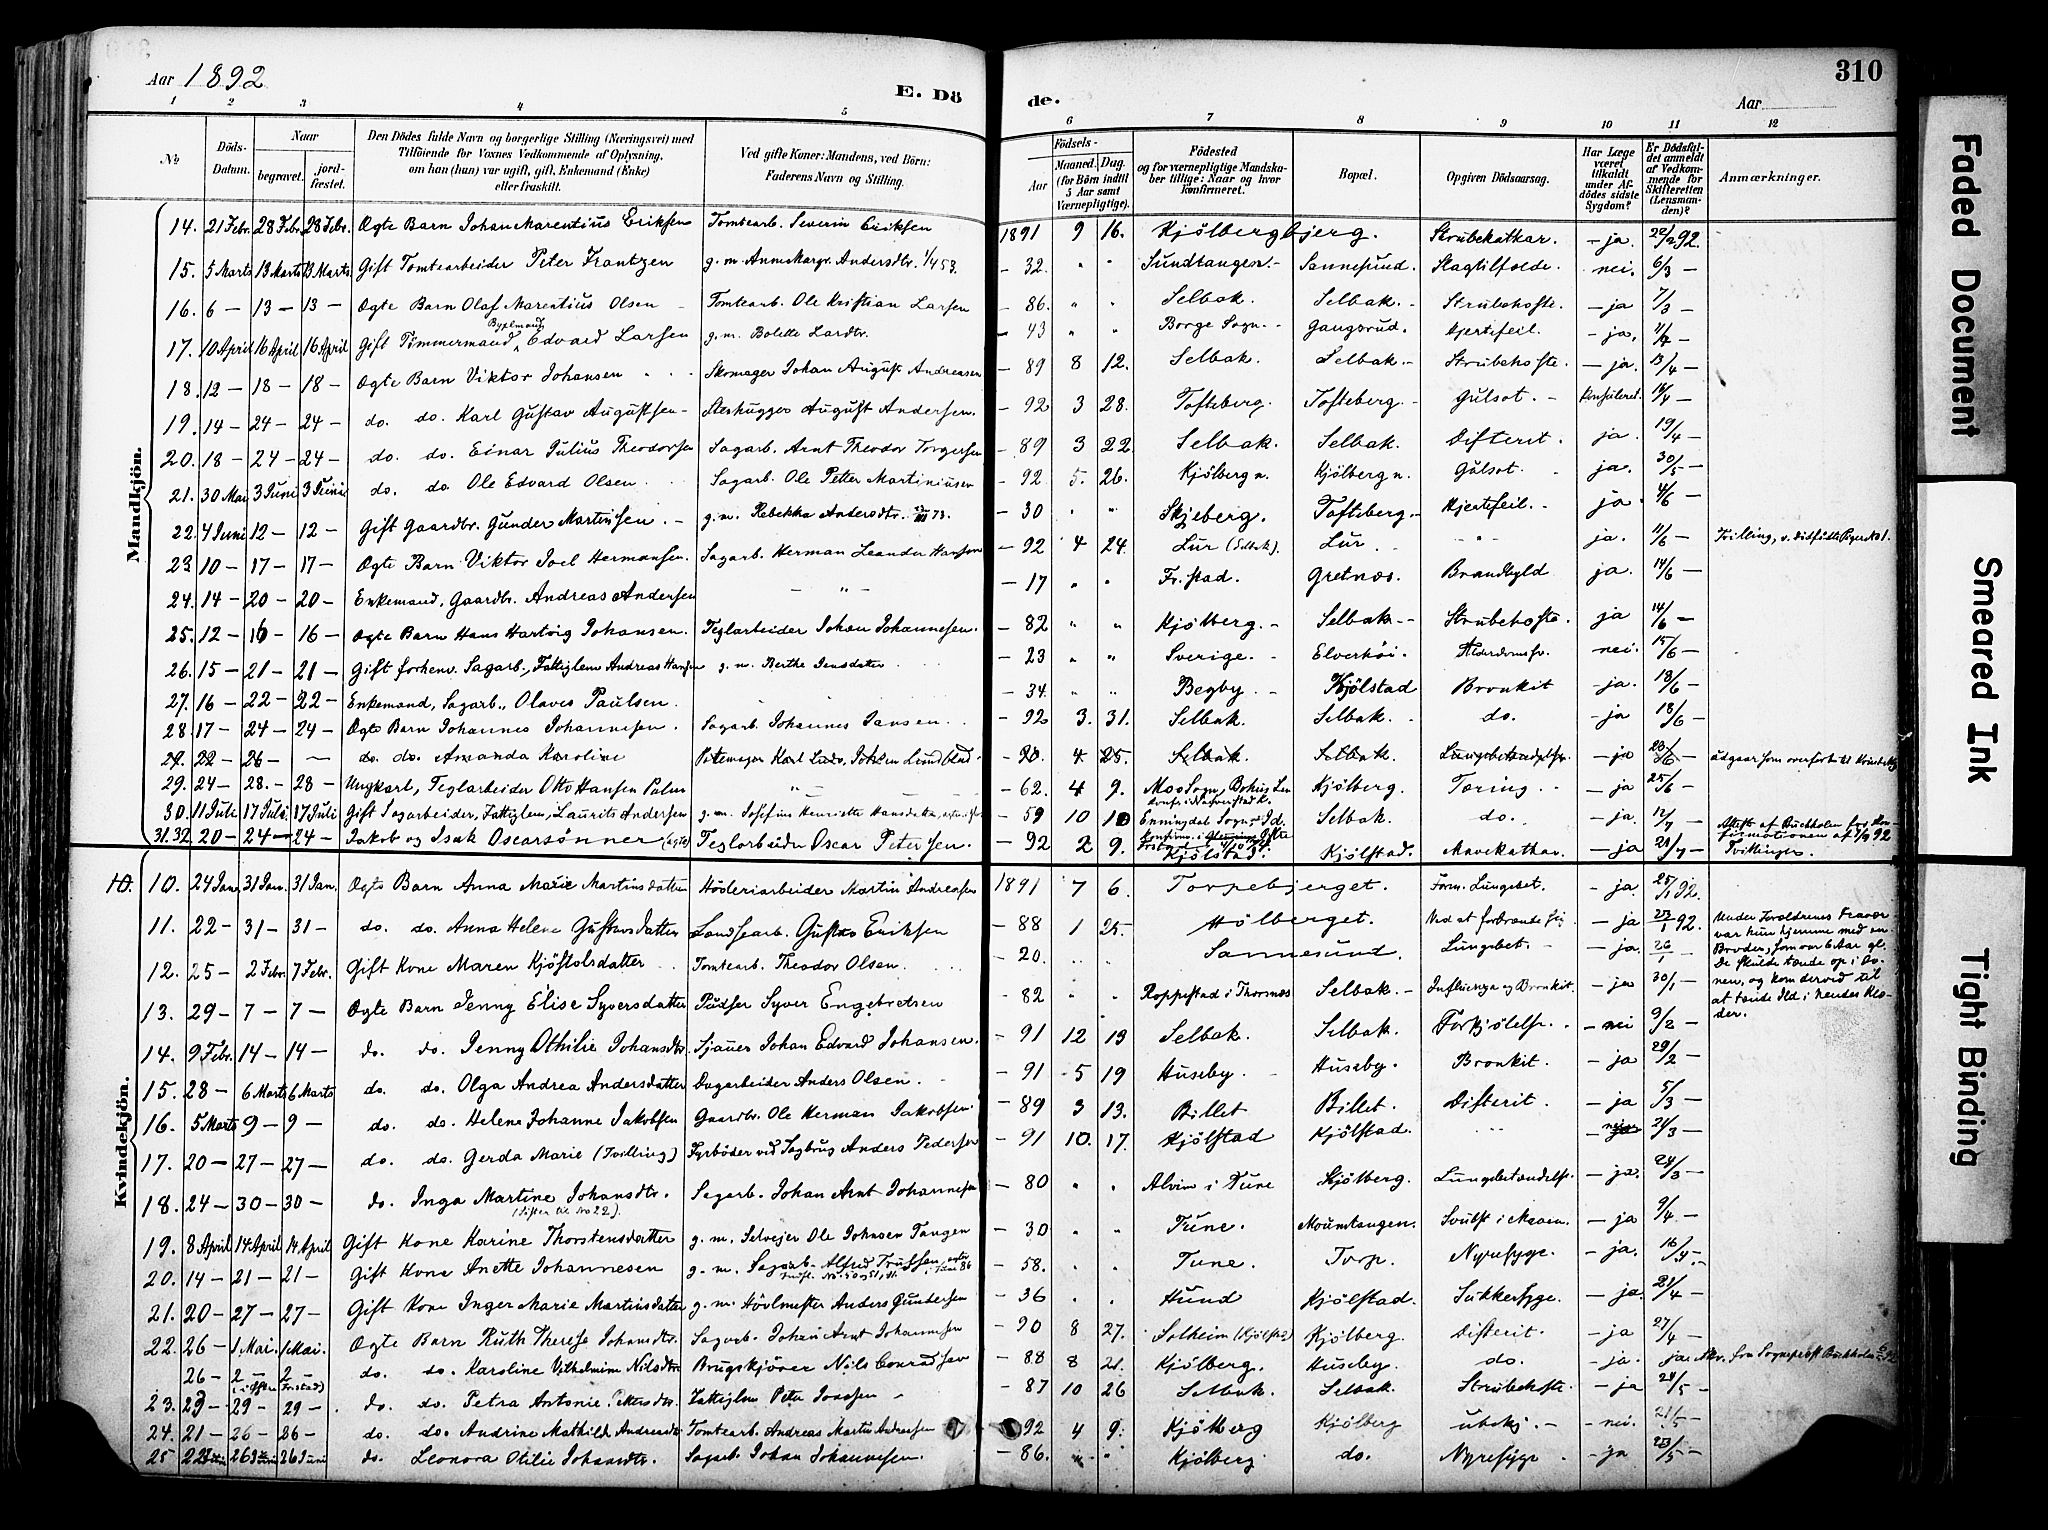 Aar 1892
E. Dö
de.
310
Aar
1 2 3 4 5 6 7 8 9 10 11 12
No
Döds-Datum.
Naar
begravet.
jordfæstet.
Den Dödes fulde Navn og borgerlige Stilling (Næringsvei) med
Tilföiende for Voxnes Vedkommende af Oplysning,
om han (hun) var ugift, gift, Enkemand (Enke)
eller fraskilt.
Ved gifte Koner: Mandens, ved Börn:
Faderens Navn og Stilling.
Födsels-
Aar
Maaned. Dag.
(for Börn indtil 5 Aar samt Værnepligtige).
Födested
og for værnepligtige Mandskaber tillige: Naar og hvor konfirmeret.
Bopæl.
Opgiven Dödsaarsag.
Har Læge været tilkaldt under Afdödes sidste Sygdom?
Er Dödsfaldet anmeldt af Vedkommende for Skifteretten (Lensmanden)?
Anmærkninger.
Mandkjön.
14. 21 Febr. 28 Febr. 28 Febr. Ægte Barn Johan Marentius Eriksen Tomtearb. Severin Eriksen 1891 9 16. Kjölbergbjerg. Strubekathar. - ja. 22/2 92.
15. 5 Marts 13 Marts 13 Marts Gift Tomtearbeider Peter Frantzen g. m. Anne Margr. Andersdtr. - 32. " " Sundtangen. - Sannesund. Slagtilfælde. - nei. 6/3 -
16. 6 - 13 - 13 - Ægte Barn Olaf Marentius Olsen Tomtearb. Ole Kristian Larsen - 86. " " Selbak. Selbak. - Strubehoste. - ja 7/3 -
17. 10 April 16 April 16 April Gift Tömmermand, Edvard Larsen g. m. Bolette Larsdtr. - 43 " " Borge Sogn. - Gangsrud. Hjertefeil. - ja.
18. 12 - 18 - 18 - Ægte Barn Viktor Johansen Skomager Johan August Andreasen - 89 8 12. Selbak. Selbak. - Strubehoste. - ja. 13/4 -
19. 14 - 24 - 24 - do. do. Karl Gustav Augustsen - Stenhugger August Andersen. - 92 3 28. Tofteberg. Tofteberg. - Gulsot. - Konsuleret. 14/4 -
20. 18 - 24 - 24 - do. do. Einar Julius Theodorsen Sagarb. Arnt Theodor Torgersen - 89 3 22. Selbak. Selbak. Difterit. - ja. 19/4 -
21. 30 Mai 3 Juni 3 Juni do. do. Ole Edvard Olsen Sagarb. Ole Petter Martiniusen - 92 5. 26. Kjölberg n. Kjölberg n. Gulsot. - ja. 30/5 -
22. 4 Juni 12 - 12 - Gift Gaardbr. Gunder Martinsen. - g. m. Rebekka Andersdtr. 73. - 30 " " Skjeberg. Tofteberg. - Hjertefeil. - ja. 4/6 -
23. 10 - 17 - 17 - Ægte Barn Viktor Joel Hermansen. Sagarb. Herman Leander Hansen - 92 4 24. Lur (Selbak). Lur. - " - ja. 11/6 - Tvilling, v. dödfödte Piger No 1.
24. 14 - 20 - 20 - Enkemand, Gaardbr. Andreas Andersen - " - - 17 " " Fr.stad. Gretnes. Brandbyld ja. 14/6 -
25. 12 - 16 - 16 - Ægte Barn Hans Hartvig Johansen. Teglarbeider Johan Johannesen. - 82 " " Kjölberg. - Selbak. - Strubehoste. ja 14/6 -
26. 15 - 21 - 21 - Gift forhenv. Sagarb., Fattiglem Andreas Hansen g. m. Berthe Jensdatter - 23 " " Sverige. - Elverhöi. Alderdomssv. nei. 15/6 -
27. 16 - 22 - 22 - Enkemand, Sagarb., Olaves Paulsen. - 34. " " Begby. - Kjölstad Bronkit - ja. 18/6 -
28. 17 - 24 - 24 - Ægte Barn Johannes Johannesen. Sagarb. Johannes Jansen. - 92 3. 31. Selbak. Selbak. do. - ja 18/6 -
29. 22 - 26 - - do. do. Amanda Karoline - 20. 4 25. Selbak. Selbak. - ja
29. 24 - 28. - 28 - Ungkarl, Teglarbeider Otto Hansen Palm " - 62. 4 9. Mo Sogn, Bohus Len Kjölberg. Tæring. - ja 25/6 -
30. 11 Juli 17 Juli 17 Juli Gift Sagarbeider, Fattiglem, Laurits Andersen g. m. Josefine Henriette - 59 10 10 Enningdal Sogn, Id. Selbak. do. - ja. 12/7 -
31.32 20 - 24 - 24 - Jakob og Isak Oscarsönner (ægte) Teglarbeider Oscar Petersen. - 92 2 9. Kjölstad. Kjölstad. Mavekathar. - ja - Tvillinger.
Kvindekjön.
10. 10. 24 Jan. 31 Jan. 31 Jan. Ægte Barn Anna Marie Martinsdatter Hövleriarbeider Martin Andreasen 1891 7 6. Torpebjerget. Form. Lungebet. - ja. 25/1 92.
11. 22 - 31 - 31 - do. do. Anna Helene Gustavsdatter Landsearb. Gustav Eriksen - 88 1 25. Hölberget. Ved at forbrænde sig. - ja 92. Under Forældrenes Fravær var hun hjemme med en Broder, som var 6 Aar gl. De skulde tænde op i Ovnen, og kom derved til at tænde Ild i hendes Klæder.
12. 25 - 2 Febr. 7 Febr. Gift Kone Maren Kjöstolsdatter Tomtearb. Theodor Olsen. - 20. " " Sannesund. Lungebet. - - ja. 26/1 -
13. 29 - 7 - 7 - Ægte Barn Jenny Elise Syversdatter Pudser Syver Engebretsen - 82 " " Roppestad i Thorsnes Selbak. - Influenza og Bronkit. - ja 30/1 -
14. 9 Febr. 14 - 14 - do. do. Jenny Othilie Johansdtr. Sjauer Johan Edvard Johansen. - 91 12 13 Selbak. Selbak. Forkjölelse. - nei 9/2 -
15. 28 - 6 Marts 6 Marts do. do. Olga Andrea Andersdatter Dagarbeider Anders Olsen. - 91 5 19 Huseby. - Huseby. Bronkit. - ja 29/2 -
16. 5 Marts 9 - 9 - do. do. Helene Johanne Jakobsen Gaardbr. Ole Herman Jakobsen. - 89 3 13. Billet Billet. Difterit. - ja 5/3 -
17. 20 - 27 - 27 - do. do. Gerda Marie (Tvilling) Fyrböder ved Sagbrug Anders Pedersen - 91 10. 17. Kjölstad Kjölstad. " 21/3 -
18. 24 - 30 - 30 - do. Inga Martine Johansdtr. (Söster til No 22). Sagarb. Johan Arnt Johannesen - 80 " " Alvim i Tune Kjölberg. Lungebetændelse. - ja. 24/3 -
19. 8 April 14 April 14 April Gift Kone Karine Thorstensdatter g. m. Selveier Ole Johnsen Tangen - 30 " " Tune. Moumtangen. Svulst i Maven. - ja 9/4 -
20. 14 - 21 - 21 - Gift Kone Anette Johannesen g. m. Sagarb. Alfred - 58. " " Tune. Torp. Nyresyge. - ja. 16/4 -
21. 20 - 27 - 27 - Gift Kone Inger Marie Martinsdatter g. m. Hövlmester Anders Gundersen - 36 " " Hund Kjölstad. Sukkersyge. - ja. 21/4 -
22. 26 - 1 Mai. 1 Mai. Ægte Barn Ruth Therese Johansdtr. Sagarb. Johan Arnt Johannesen - 90 8 27. Solheim (Kjölstad) Kjölberg. Difterit. - ja 27/4 -
26 - 2 - 2 - (i Östre Fr.stad) do. do. Karoline Vilhelmine Nilsdtr. Brugskjörer Nils Conradsen - 88 8 21. Kjölberg. Huseby. do. - ja. ja.
23. 23 - 29 - 29 - do. do. Petra Antonie Pettersdtr. Fattiglem - 87 10 26 Selbak. Selbak. Strubehoste. - ja 24/5 -
24. 21 - 26 - 26 - do. do. Andrine Mathilde Tomtearb. Andreas Martin Andreassen - 92 4 9. Kjölberg Kjölberg - nei. 21/5 -
25 26 Juni 26 Juni do. Leonora Otilie Johansdtr. Sagarb. Johan Johannesen. - 86. " " Kjölberg do. Nyresyge - ja 23/5 -
Faded Document
Smeared Ink
Tight Binding